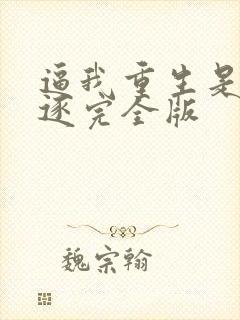 逼我重生是
逐完全版
魏宗翰